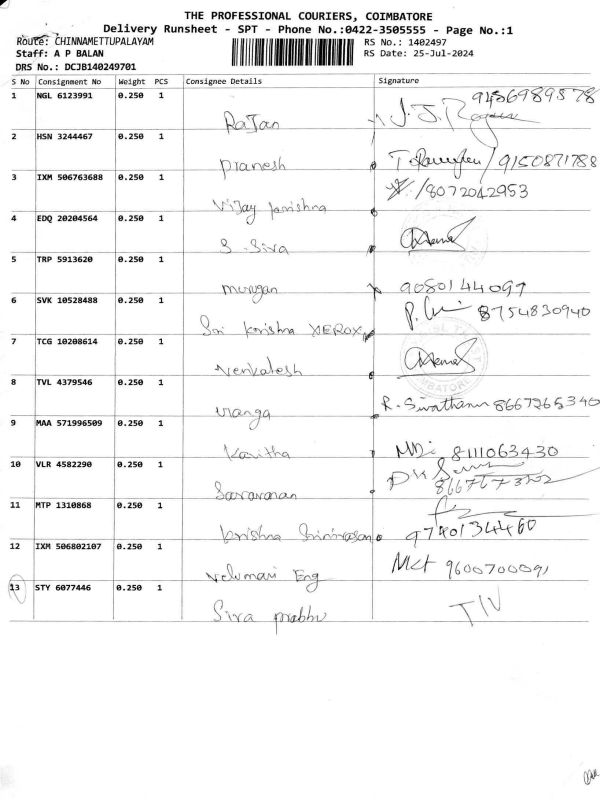 THE PROFESSIONAL COURIERS, COIMBATORE
Delivery Runsheet - SPT - Phone No.:0422-3505555 - Page No.:1
Route: CHINNAMETTUPALAYAM RS No.: 1402497
Staff: A P BALAN RS Date: 25-Jul-2024
DRS No.: DCJB140249701
S No Consignment No Weight PCS Consignee Details Signature
1 NGL 6123991 0.250 1 9456989578
RaJan J. J.
2 HSN 3244467 0.250 1
Pranesh /9150871788
3 IXM 506763688 0.250 1 /8072042953
Vijay krishna
4 EDQ 20204564 0.250 1
S. Siva
5 TRP 5913620 0.250 1
murugan 9080144097
6 SVK 10528488 0.250 1 8754830940
Sri krishna XEROX
7 TCG 10208614 0.250 1
Venkatesh
8 TVL 4379546 0.250 1
Uranga R. 8667265340
9 MAA 571996509 0.250 1
Kavitha 8111063430
10 VLR 4582290 0.250 1
Saravanan
11 MTP 1310868 0.250 1
krishna Srinivasan 9740134460
12 IXM 506802107 0.250 1
Velumani Eng 9600700091
13 STY 6077446 0.250 1
Siva prabhu TIV